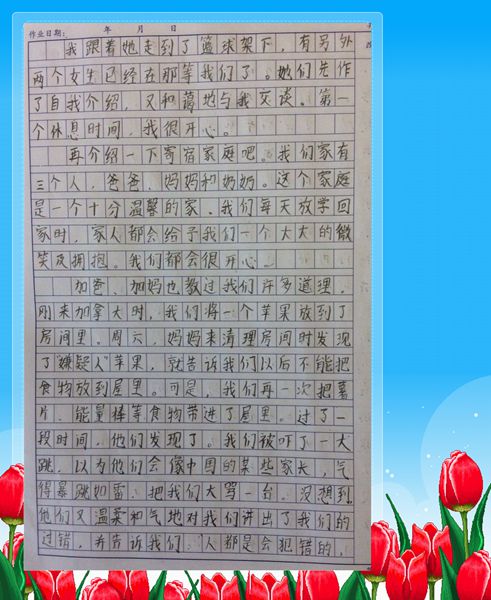 作业日期： 年 月 日
我跟着她走到了篮球架下，有另外
两个女生已经在那等我们了。她们先作
了自我介绍，又和蔼地与我交谈。第一
个休息时间，我很开心。
再介绍一下寄宿家庭吧。我们家有
三个人，爸爸、妈妈和奶奶。这个家庭
是一个十分温馨的家。我们每天放学回
家时，家人都会给予我们一个大大的微
笑及拥抱。我们都会很开心。
加爸、加妈也教过我们许多道理，
刚来加拿大时，我们将一个苹果放到了
房间里。周六，妈妈来清理房间时发现
了“嫌疑人”苹果，就告诉我们以后不能把
食物放到屋里。可是，我们再一次把薯
片、能量棒等食物带进了屋里。过了一
段时间，他们发现了。我们被吓了一大
跳，以为他们会像中国的某些家长，气
得暴跳如雷，把我们大骂一台。没想到
他们又温柔和气地对我们讲出了我们的
过错，并告诉我们：“人都是会犯错的，